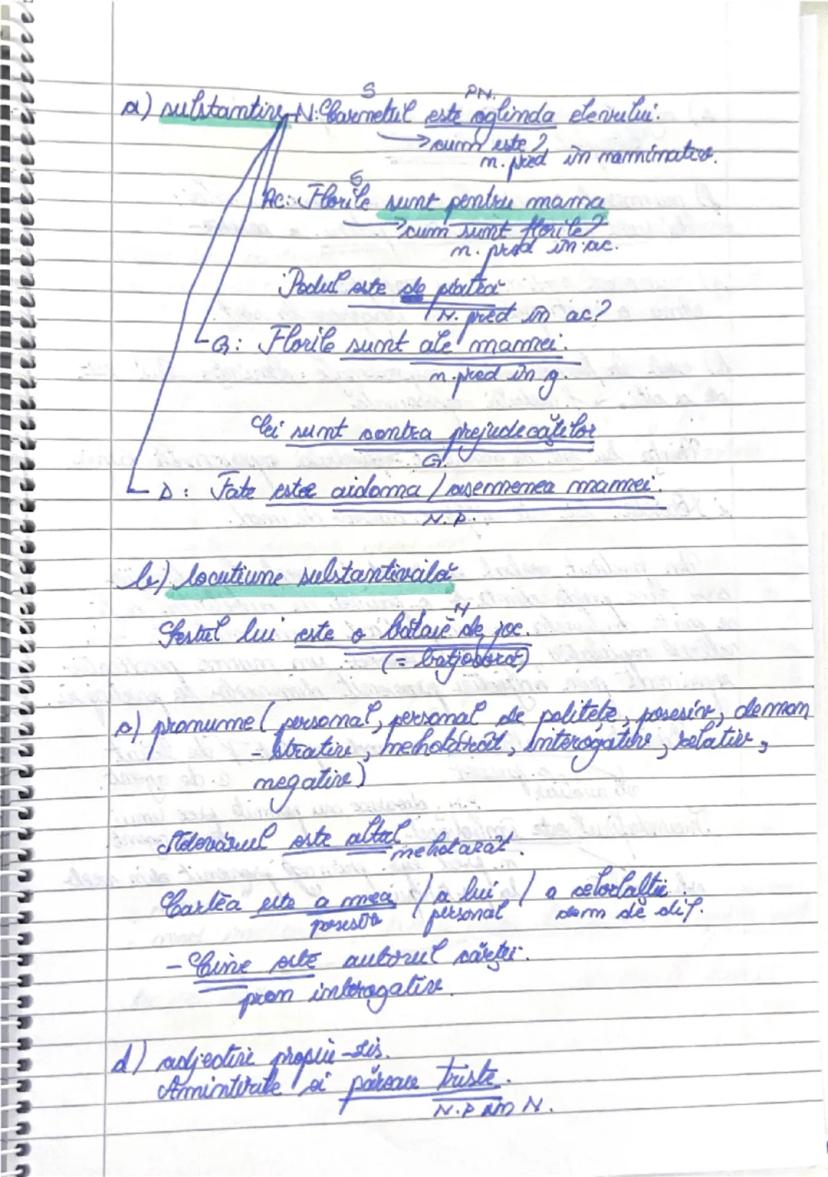 S PN.
a) substantiv N: Carnetul este oglinda elevului.
→ cum este?
n. pred în nominativ.
S
Ac: Florile sunt pentru mama
→ cum sunt florile?
n. pred în ac.
Podul este de piatră
N. pred în ac?
G: Florile sunt ale mamei.
n. pred în g.
Ei sunt contra prejudecăților
G.
D: Fate este aidoma / asemenea mamei.
N.P.
b) locutiune substantivală
N
Gestul lui este o bătaie de joc.
(= batjocură)
c) pronume (personal, personal de politețe, posesiv, demon
- strativ, nehotărât, interogativ, relativ,
negativ)
Adevărul este altul
nehotarât.
Cartea este a mea / a lui / a celorlalți.
posesiv personal dem de dif.
- Cine este autorul cărței.
pron interogativ.
d) adjectiv propiu-zis.
Amintirile ei păreau triste.
N.P în N.